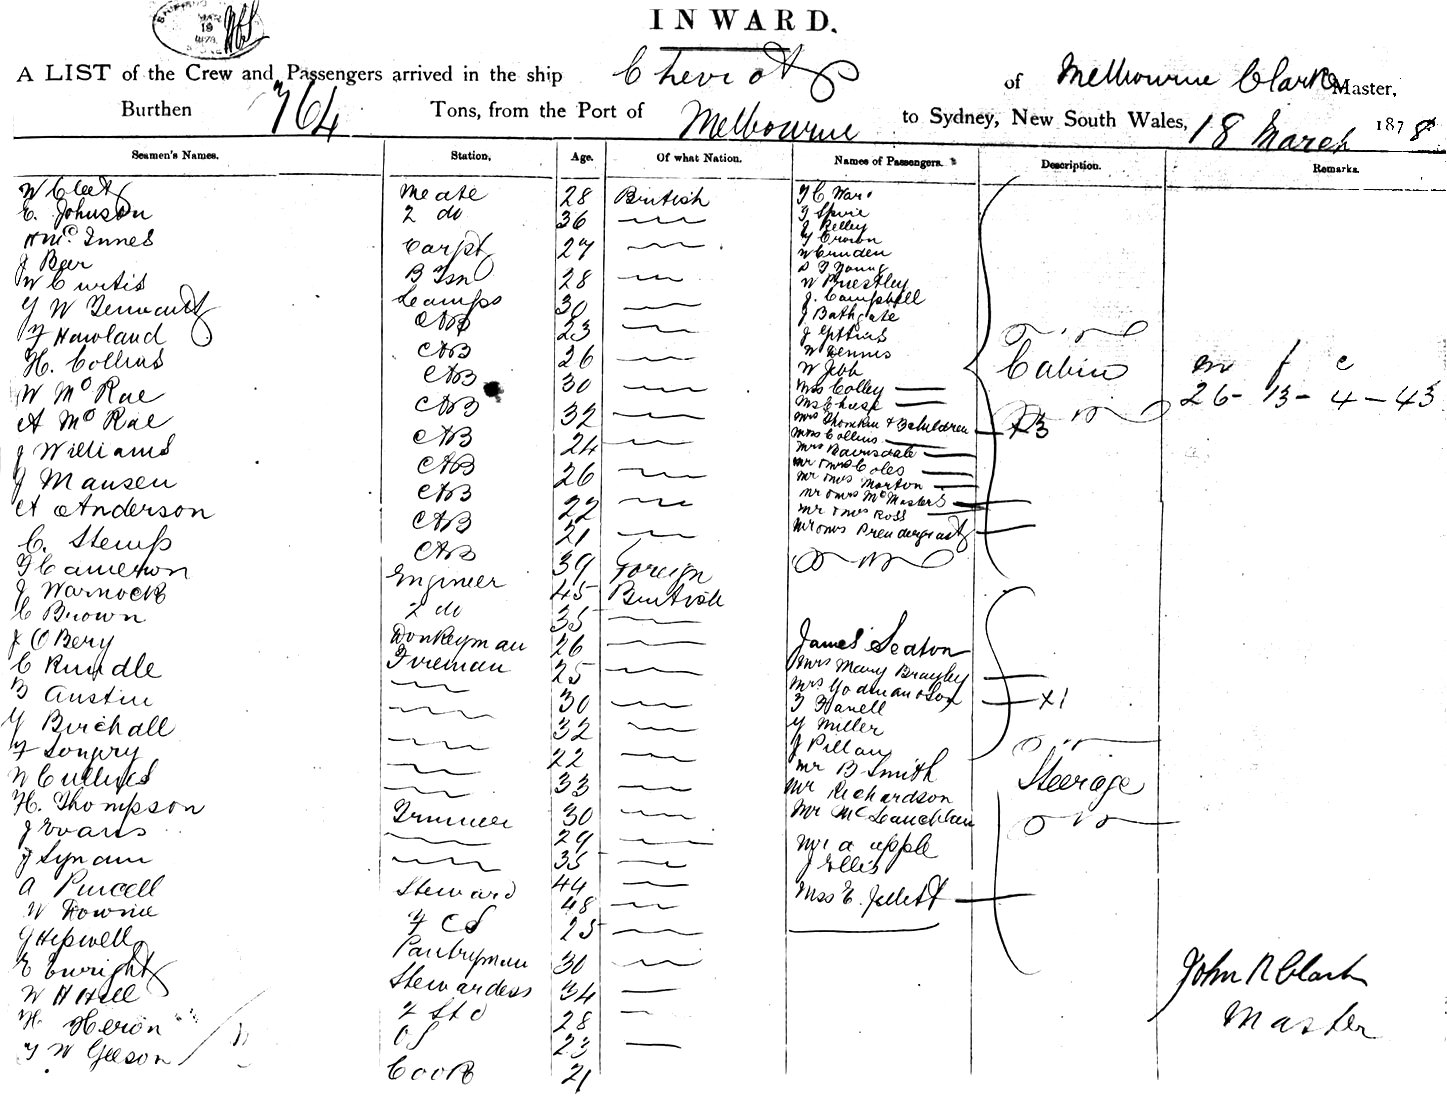 INWARD.
MAR
19
A LIST of the Crew and Passengers arrived in the ship Cheviot of Melbourne Clark Master,
Burthen 764 Tons, from the Port of Melbourne to Sydney, New South Wales, 18 March 1878
Seamen's Names. Station. Age. Of what Nation. Names of Passengers. Description. Remarks.
W Cleet
E. Johnson
Innes
J Beer
W Curtis
W
Howland
H. Collins
W McRae
A McRae
J Williams
J Mansen
A Anderson
C. Stemp
Cameron
J Warnock
C Brown
J O Bery
C Rundle
B Austin
Birchall
W
H. Thompson
J Evans
J Lynam
A Purcell
W Townie
Hipwell
E Enright
W H Hill
H. Heron
W Geeson
Meate
2 do
Carpt
B Tsn
Lamps
AB
AB
AB
AB
AB
AB
AB
AB
AB
Engineer
2 do
Donkeyman
Fireman
Trimmer
Steward
CS
Pantryman
Stewardess
2 Std
OS
Cook
28
36
27
28
30
23
26
30
32
24
26
22
21
39
45
35
26
25
30
32
22
33
30
29
35
44
48
25
30
34
28
23
21
British
Foreign
British
C Ware
J Kelley
Crown
W Cruden
Young
W Priestley
J. Campbell
J Bathgate
W Dennis
W Jebb
Mrs Colley
Ms Chase
Mrs Thomkin & 3 children + 3
Miss Collins
Mrs Bairnsdale
Mr & Mrs Coles
Mr & Mrs Morton
Mr & Mrs McMasters
Mr & Mrs Ross
Mr & Mrs Prendergast
James Seaton
Mrs Mary Brayley
Mrs Yodman & Son + 1
Miller
J Pillan
Mr B Smith
Mr Richardson
Mr McLauchlan
Mr A Apple
J Ellis
Miss E. Jellett
Cabin
Steerage
m f c
26 - 13 - 4 - 43
John R Clark
Master